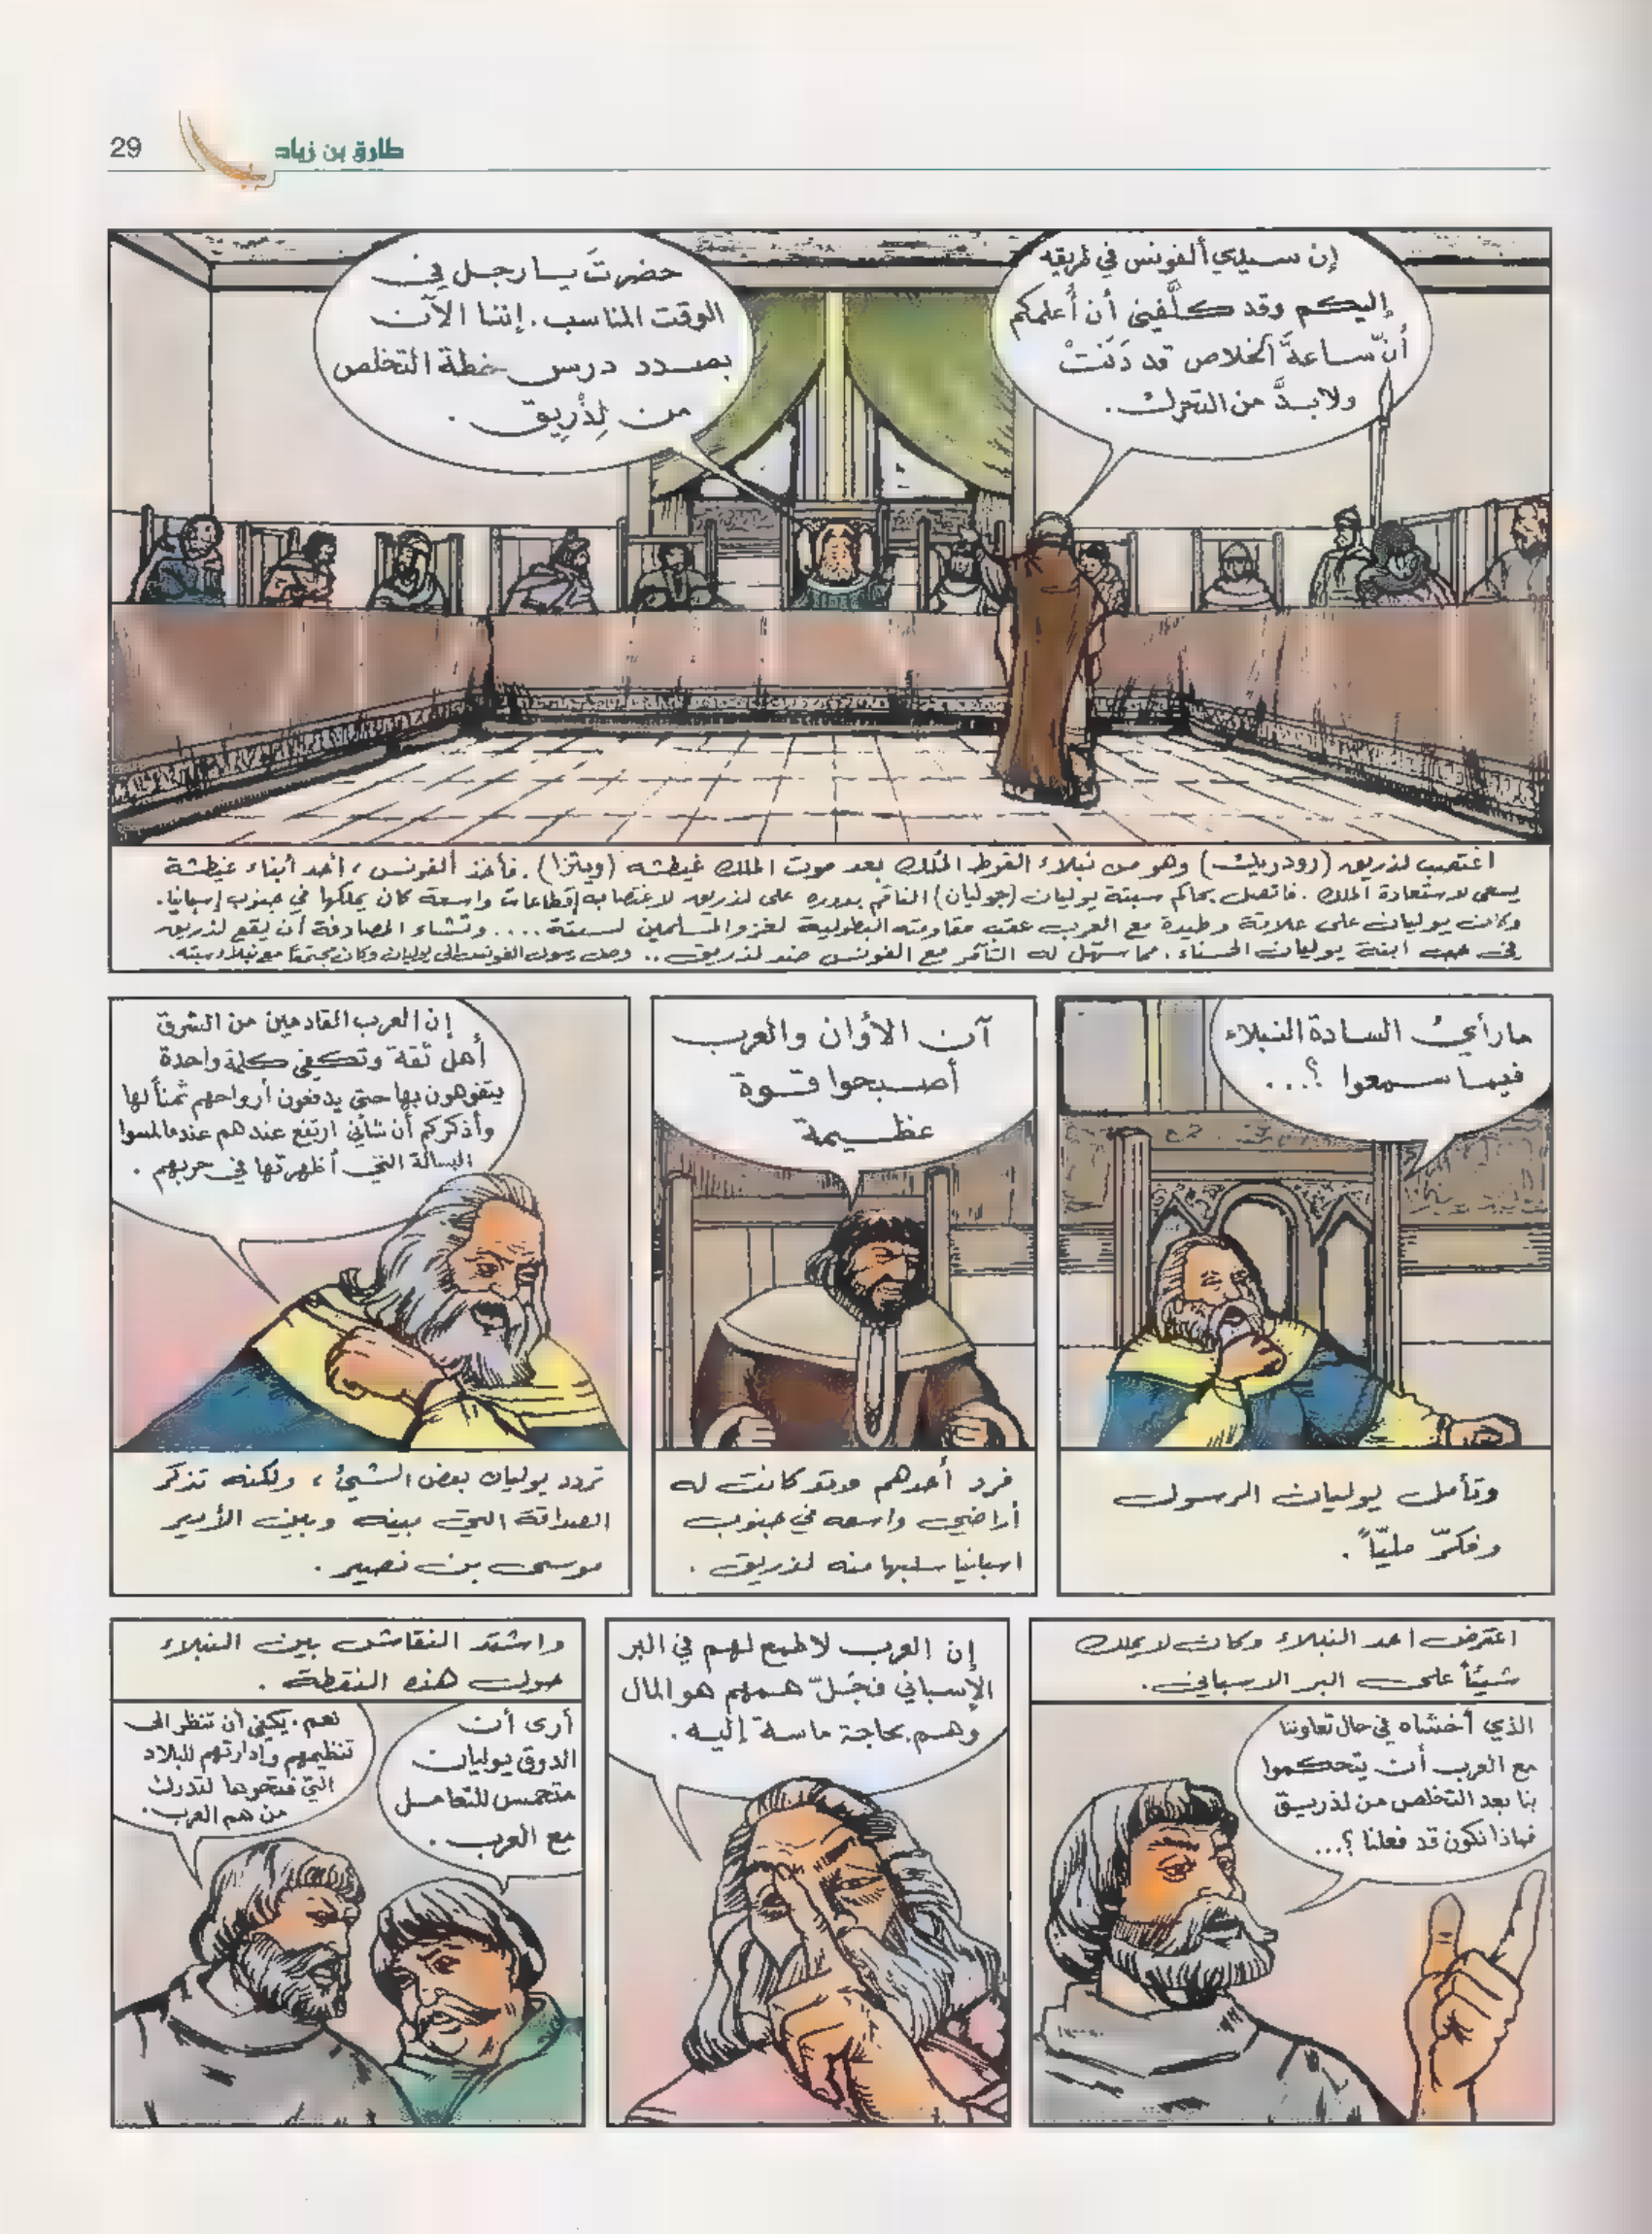 29
طارق بن زياد
إن سيدي ألفونس في طريقه
إليكم وقد كلَّفني أن أُعلمكم
أنّ ساعةَ الخلاص قد دَنَتْ
ولا بدَّ من التحرك.
حضرتَ يا رجل في
الوقت المناسب. إننا الآن
بصدد درس خطة التخلص
من لِذْرِيق.
اغتصب لذريق (رودريك) وهو من نبلاء القوط المُلك بعد موت الملك غيطشه (ويتزا). فأخذ ألفونس، أحد أبناء غيطشة
يسعى لاستعادة الملك. فاتصل بحاكم سبتة يوليان (جوليان) الناقم بدوره على لذريق لاغتصابه إقطاعات واسعة كان يملكها في جنوب إسبانيا.
وكان يوليان على علاقة وطيدة مع العرب عقب مقاومته البطولية لغزو المسلمين لسبتة .... وتشاء المصادفة أن يقع لذريق
في حب ابنة يوليان الحسناء. مما سهل له التآمر مع الفونس ضد لذريق.. وصل رسول الفونس إلى يوليان وكان مجتمعاً مع نبلاء سبته.
ما رأيُ السادة النبلاء
فيما سمعوا ؟...
وتأمل يوليان الرسول
وفكّر مليّاً.
آن الأوان والعرب
أصبحوا قوة
عظيمة
فرد أحدهم وقد كانت له
أراضي واسعه في جنوب
اسبانيا سلبها منه لذريق.
إن العرب القادمين من الشرق
أهل ثقة وتكفي كلمة واحدة
يتفوهون بها حتى يدفعون أرواحهم ثمناً لها
وأذكركم أن شأني ارتفع عندهم عندما لمسوا
البسالة التي أظهرتها في حربهم.
تردد يوليان بعض الشيئ، ولكنه تذكر
الصداقة التي بينه وبين الأمير
موسى بن نصير.
اعترض احد النبلاء وكان لا يملك
شيئاً على البر الاسباني.
الذي أخشاه في حال تعاوننا
مع العرب أن يتحكموا
بنا بعد التخلص من لذريق
فماذا نكون قد فعلنا ؟...
إن العرب لا طمع لهم في البر
الإسباني فجُلّ همهم هو المال
وهم بحاجة ماسة إليه.
واشتد النقاش بين النبلاء
حول هذه النقطة.
أرى أن
الدوق يوليان
متحمس للتعامل
مع العرب.
نعم. يكفي أن تنظر الى
تنظيمهم وإدارتهم للبلاد
التي فتحوها لتدرك
من هم العرب.